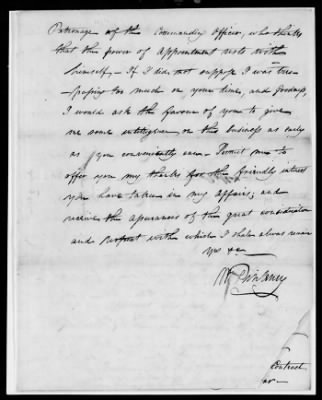 Patronage of the Commanding Officer, who thinks
that the power of appointment rests with
himself,- If I did not suppose I was tres-
-passing too much on your time, and goodness,
I would ask the favour of you to give
me some intelligence on this business as early
as you conveniently can - Permit me to
offer you my thanks for the friendly interest
you have taken in my affairs; and
receive the assurances of the great consideration
and respect with which I shall always remain
Yrs &c
Wm
Contract